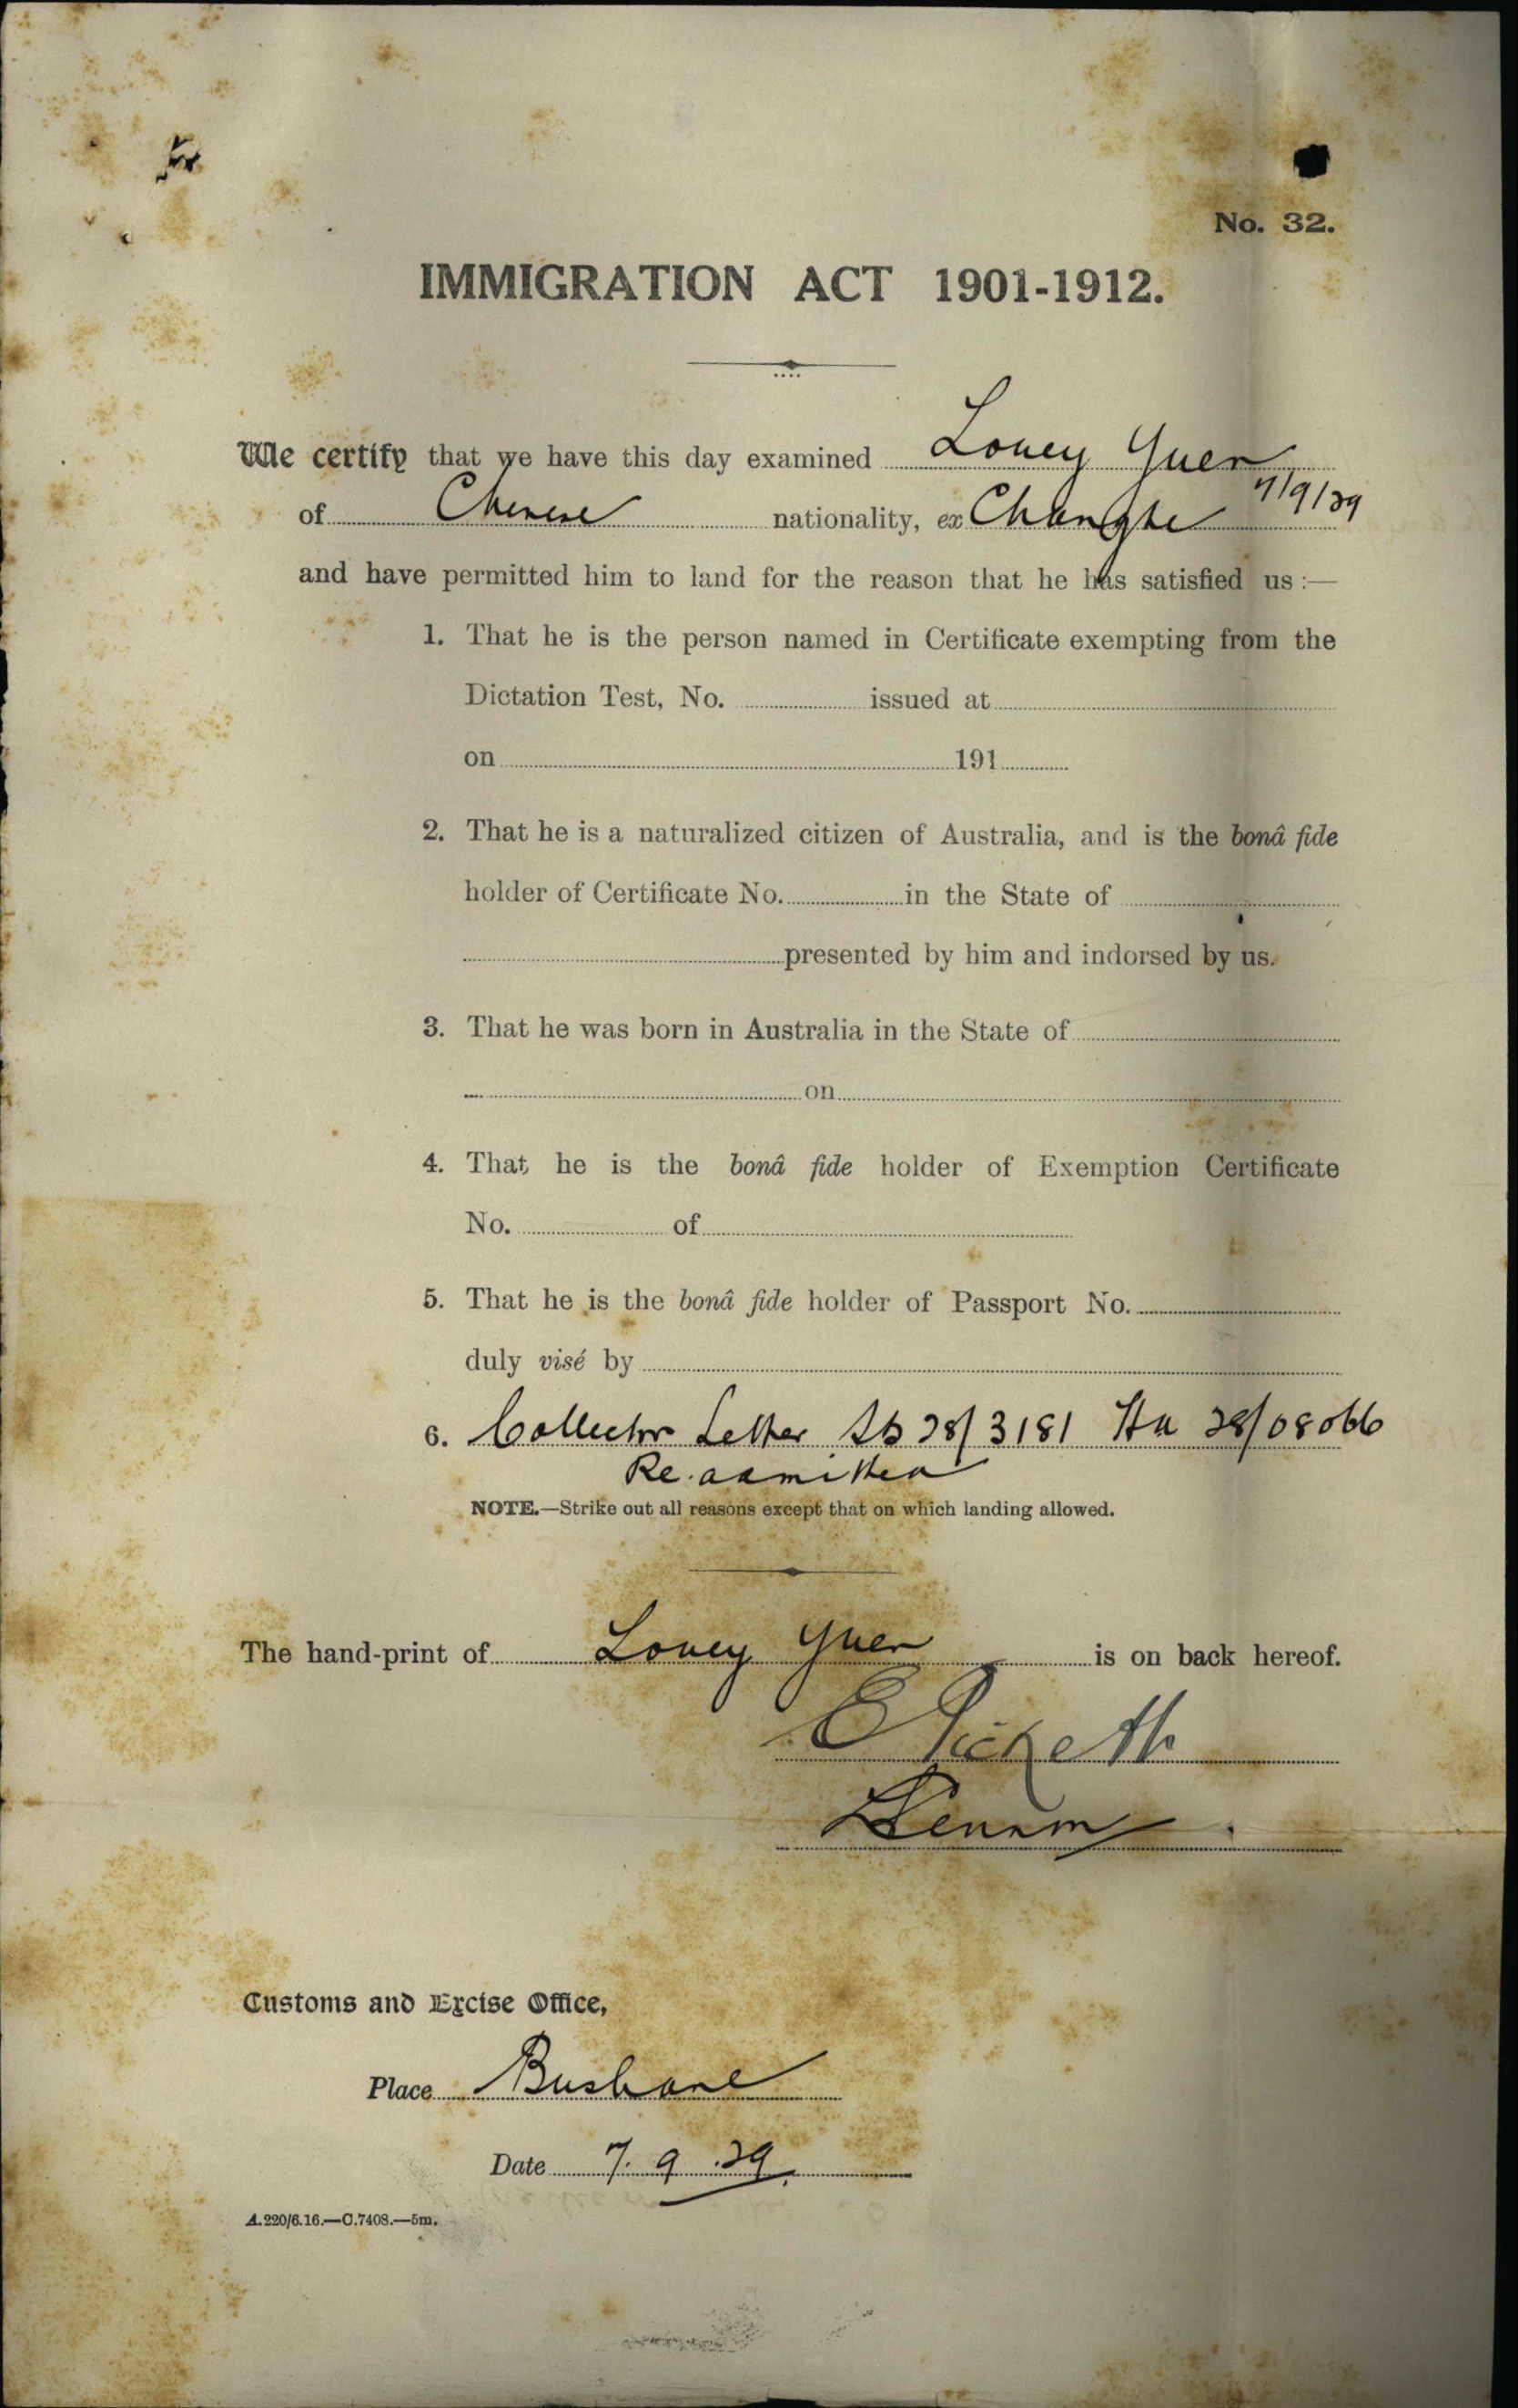 No. 32.
IMMIGRATION ACT 1901-1912.
We certify that we have this day examined Louey Yuen
of Chinese nationality, ex Changte 7/9/29
and have permitted him to land for the reason that he has satisfied us :—
1. That he is the person named in Certificate exempting from the
Dictation Test, No. issued at
on 191
2. That he is a naturalized citizen of Australia, and is the bonâ fide
holder of Certificate No. in the State of
presented by him and indorsed by us.
3. That he was born in Australia in the State of
on
4. That he is the bonâ fide holder of Exemption Certificate
No. of
5. That he is the bonâ fide holder of Passport No.
duly visé by
6. Collector Letter 28/3181 28/08066
Re.admitted
NOTE.—Strike out all reasons except that on which landing allowed.
The hand-print of Louey Yuen is on back hereof.
Customs and Excise Office,
Place Brisbane
Date 7.9.29
A.220/6.16.—C.7408.—5m.